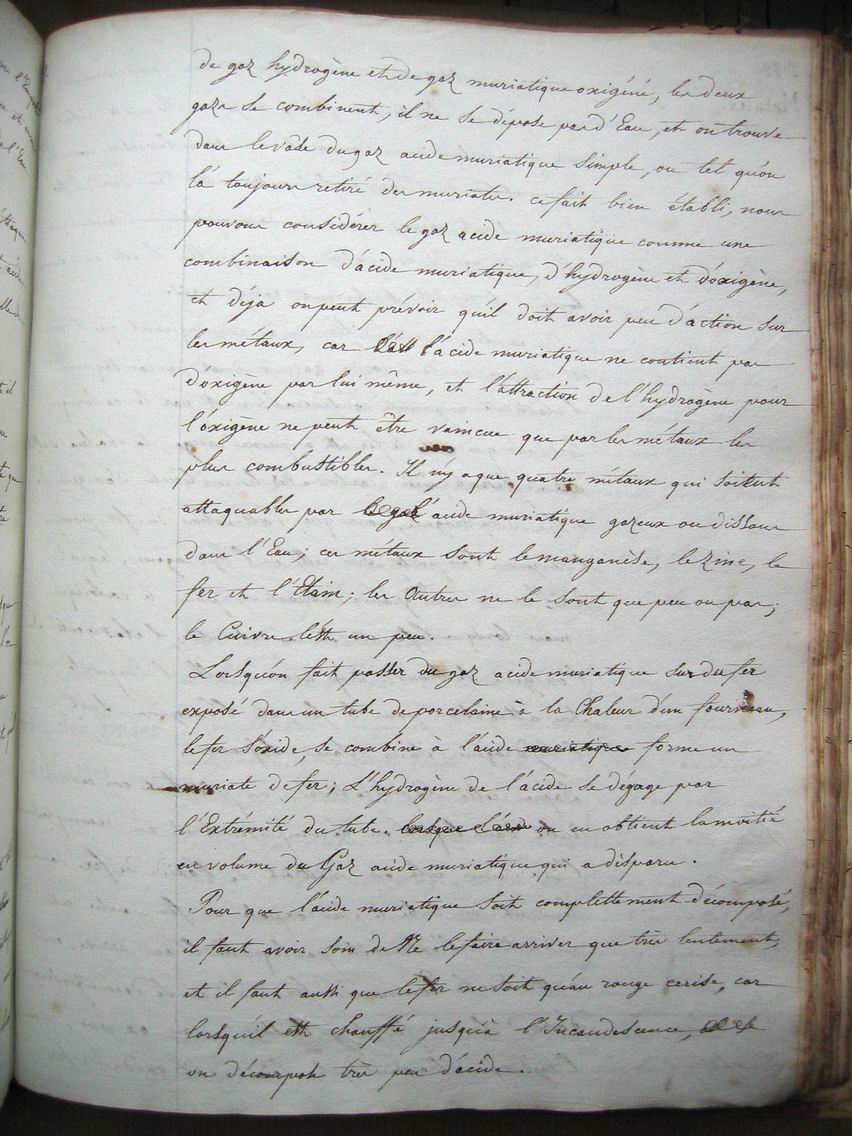 de gaz hydrogène et de gaz muriatique oxigéné, les deux
gazs se combinent, il ne se dépose pas d'Eau, et on trouve
dans le vase du gaz acide muriatique simple, ou tel qu'on
l'a toujours retiré des muriates. ce fait bien établi, nous
pouvons considérer le gaz acide muriatique comme une
combinaison d'acide muriatique, d'hydrogène et d'oxigène,
et déja on peut prévoir qu'il doit avoir peu d'action sur
les métaux, car l'acide muriatique ne contient pas
d'oxigène par lui même, et l'attraction de l'hydrogène pour
l'oxigène ne peut être vaincue que par les métaux les
plus combustibles. Il n'y a que quatre métaux qui soient
attaquables par l'acide muriatique gazeux ou dissous
dans l'Eau; ces métaux sont le manganèse, le zinc, le
fer et l'Etain; les Autres ne le sont que peu ou pas;
le Cuivre l'est un peu.
Lorsqu'on fait passer du gaz acide muriatique sur du fer
exposé dans un tube de porcelaine à la Chaleur d'un fourneau,
le fer s'oxide, se combine à l'acide muriatique forme un
muriate de fer; L'hydrogène de l'acide se dégage par
l'Extrémité du tube. on en obtient la moitié
en volume du Gaz acide muriatique qui a disparu.
Pour que l'acide muriatique soit complettement décomposé,
il faut avoir soin de Ne le faire arriver que très lentement,
et il faut aussi que le fer ne soit qu'au rouge cerise, car
lorsqu'il est chauffé jusqu'à l'Incandescence,
on décompose très peu d'acide.